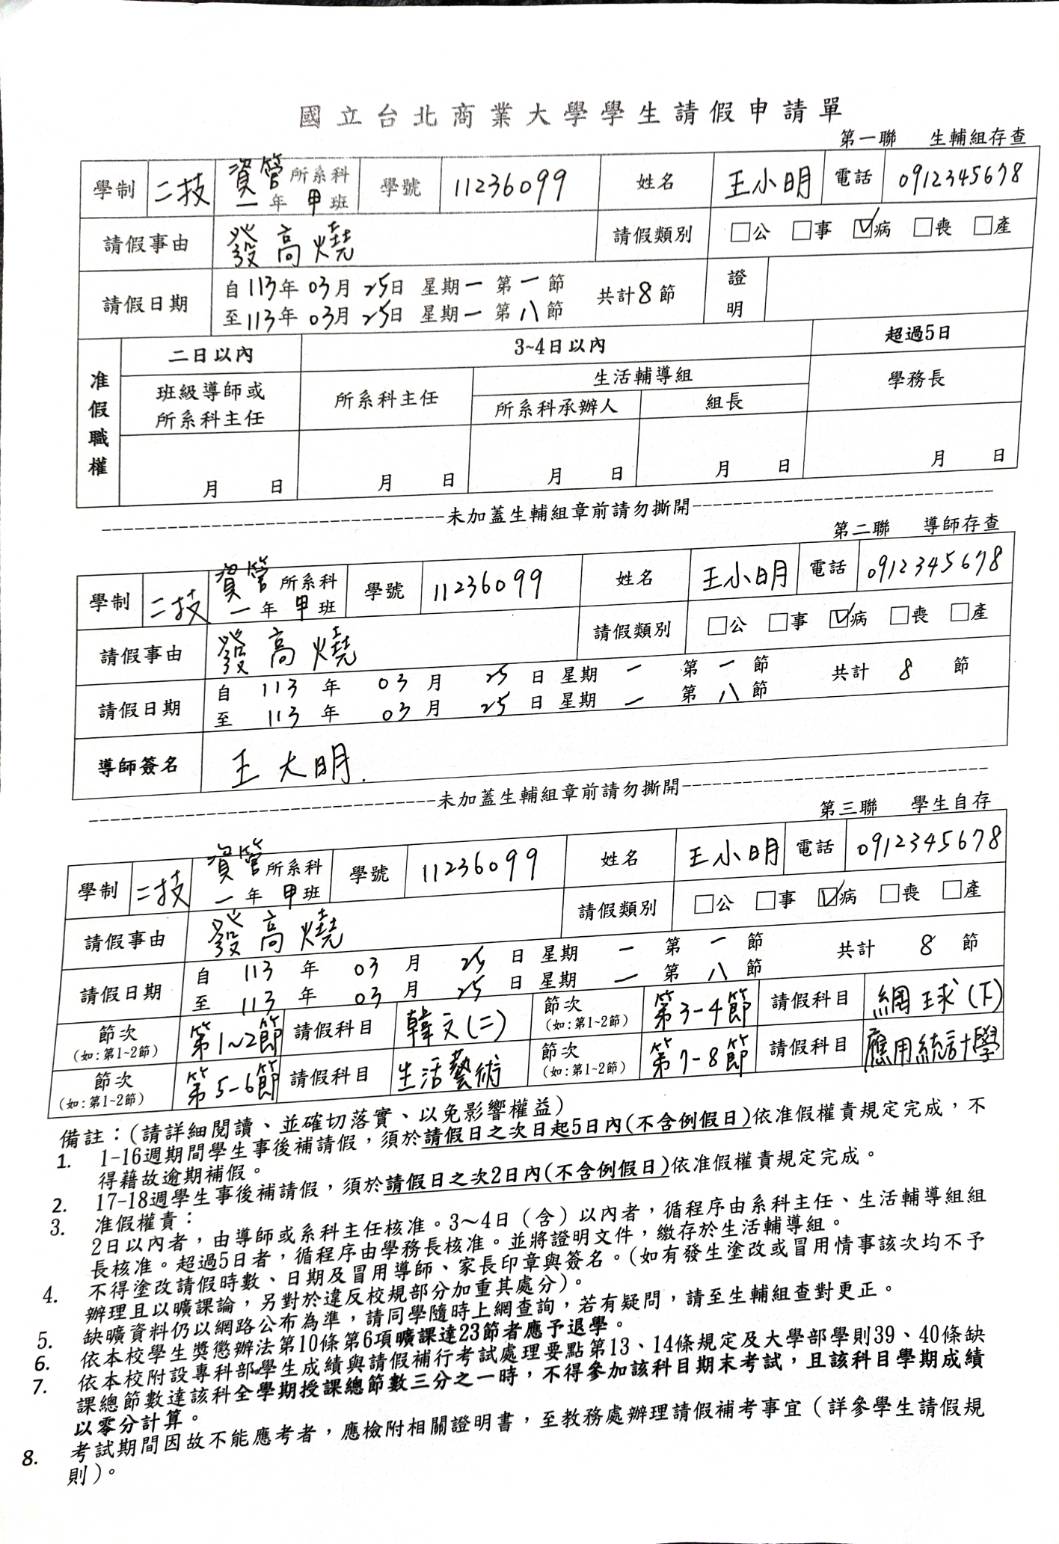 國立台北商業大學學生請假申請單
第一聯 生輔組存查
學制 二技 資管所系科 一年甲班 學號 11236099 姓名 王小明 電話 0912345678
請假事由 發高燒 請假類別 □公 □事 ☑病 □喪 □產
請假日期 自113年03月25日 星期一 第一節 共計8節 證明
至113年03月25日 星期一 第八節
准假職權 二日以內 3~4日以內 超過5日
班級導師或所系科主任 所系科主任 生活輔導組 學務長
所系科承辦人 組長
月 日 月 日 月 日 月 日 月 日
未加蓋生輔組章前請勿撕開
第二聯 導師存查
學制 二技 資管所系科 一年甲班 學號 11236099 姓名 王小明 電話 0912345678
請假事由 發高燒 請假類別 □公 □事 ☑病 □喪 □產
請假日期 自 113 年 03 月 25 日 星期 一 第 一 節 共計 8 節
至 113 年 03 月 25 日 星期 一 第 八 節
導師簽名 王大明.
未加蓋生輔組章前請勿撕開
第三聯 學生自存
學制 二技 資管所系科 一年甲班 學號 11236099 姓名 王小明 電話 0912345678
請假事由 發高燒 請假類別 □公 □事 ☑病 □喪 □產
請假日期 自 113 年 03 月 25 日 星期 一 第 一 節 共計 8 節
至 113 年 03 月 25 日 星期 一 第 八 節
節次(如:第1~2節) 第1~2節 請假科目 韓文(二) 節次(如:第1~2節) 第3-4節 請假科目 網球(下)
節次(如:第1~2節) 第5-6節 請假科目 生活藝術 節次(如:第1~2節) 第7-8節 請假科目 應用統計學
備註:(請詳細閱讀、並確切落實、以免影響權益)
1. 1-16週期間學生事後補請假,須於請假日之次日起5日內(不含例假日)依准假權責規定完成,不
得藉故逾期補假。
2. 17-18週學生事後補請假,須於請假日之次2日內(不含例假日)依准假權責規定完成。
3. 准假權責:
2日以內者,由導師或系科主任核准。3～4日(含)以內者,循程序由系科主任、生活輔導組組
長核准。超過5日者,循程序由學務長核准。並將證明文件,繳存於生活輔導組。
4. 不得塗改請假時數、日期及冒用導師、家長印章與簽名。(如有發生塗改或冒用情事該次均不予
辦理且以曠課論,另對於違反校規部分加重其處分)。
5. 缺曠資料仍以網路公布為準,請同學隨時上網查詢,若有疑問,請至生輔組查對更正。
6. 依本校學生獎懲辦法第10條第6項曠課達23節者應予退學。
7. 依本校附設專科部學生成績與請假補行考試處理要點第13、14條規定及大學部學則39、40條缺
課總節數達該科全學期授課總節數三分之一時,不得參加該科目期末考試,且該科目學期成績
以零分計算。
8. 考試期間因故不能應考者,應檢附相關證明書,至教務處辦理請假補考事宜(詳參學生請假規
則)。